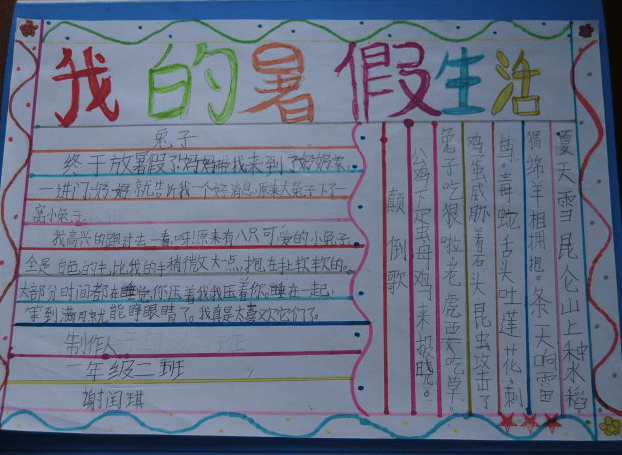 我的暑假生活
兔子
终于放暑假了!妈妈带我来到了奶奶家,
一进门,奶奶就告诉我一个好消息,原来大兔子下了一
窝小兔子。
我高兴的跑过去一看,呀!原来有八只可爱的小兔子
全是白色的毛,比我的手稍微大点,抱在手上软软的。
大部分时间都在睡觉,你压着我我压着你,睡在一起,
等到满月就能睁眼睛了。我真是太喜欢它们了。
制作人
一年级二班
谢闰琪
夏天雪昆仑山上种水稻
绵羊相拥抱。冬天响雷
毒蛇舌头吐莲花刺
鸡蛋威胁着石头昆虫攻击了
兔子吃狼啦老虎要吃草。
公鸡下蛋母鸡来报晓。
颠倒歌